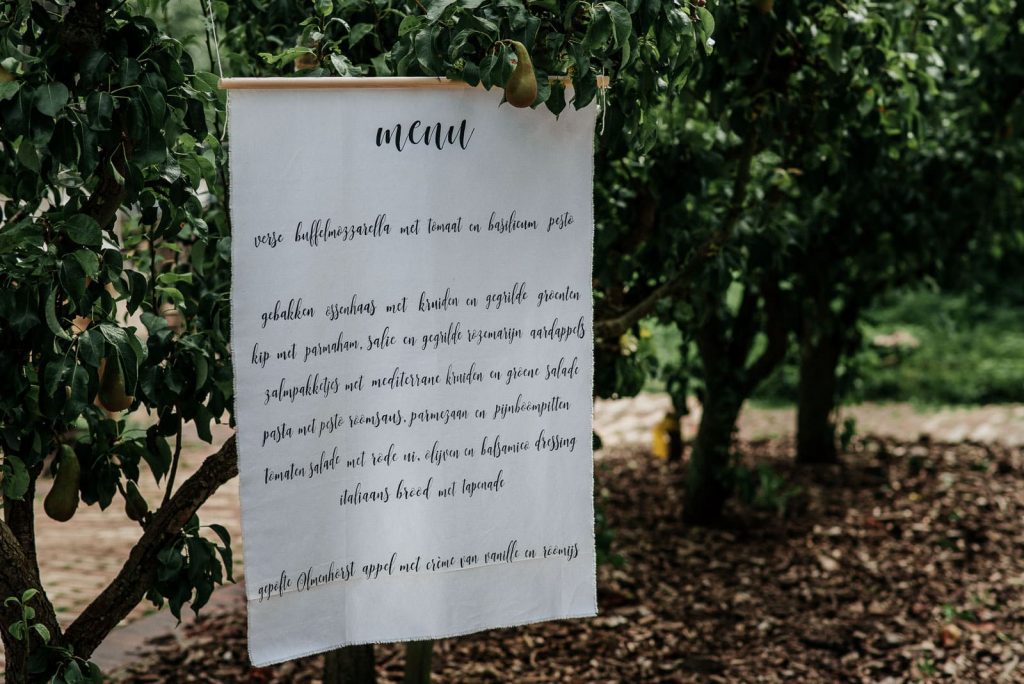 menu
verse buffelmozzarella met tomaat en basilicum pesto
gebakken ossenhaas met kruiden en gegrilde groenten
kip met parmaham, salie en gegrilde rozemarijn aardappels
zalmpakketjes met mediterrane kruiden en groene salade
pasta met pesto roomsaus, parmezaan en pijnboompitten
tomaten salade met rode ui, olijven en balsamico dressing
italiaans brood met tapenade
gepofte Olmenhorst appel met crème van vanille en roomijs